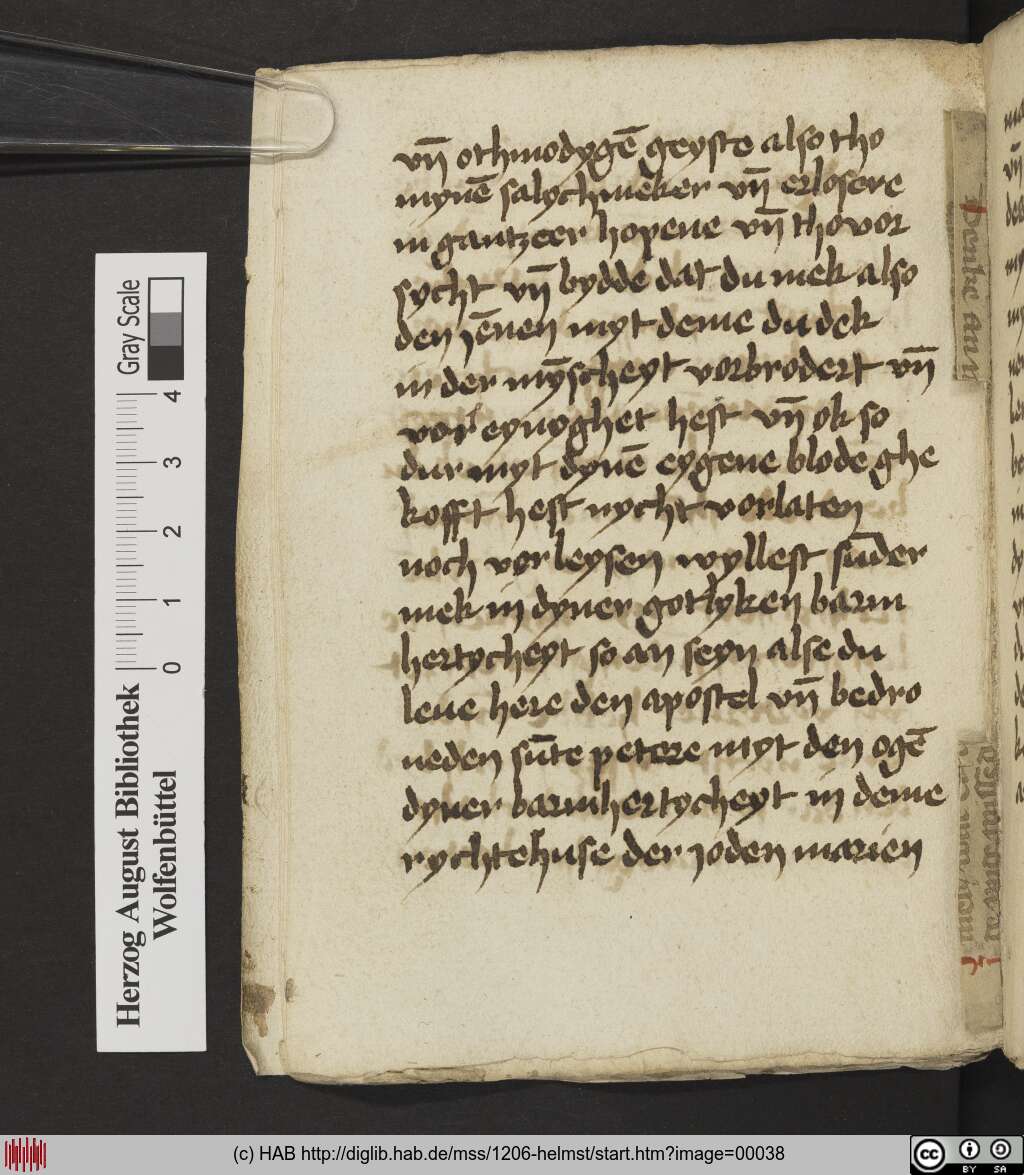 vn̄ othmodygē geyste also tho
mynē salychmeker vn̄ erlosere
in gantzeer hopene vn̄ thovor
sycht vn̄ bydde dat du mek also
den jēnen myt deme du dek
in der mȳscheyt vorbrodert vn̄
vor eynyghet hest vn̄ ok so
dur myt dynē eygene blode ghe
kofft hest nycht vorlaten
noch vor leysen wyllest sūder
mek in dyner gotlyken barm
hertycheyt so an seyn alse du
leue here den apostel vn̄ bedro
ueden sūte petere myt den ogē
dyner barmhertycheyt in deme
rychtehuse der joden marien
Gray Scale
4
3
2
1
0
Herzog August Bibliothek
Wolfenbüttel
(c) HAB http://diglib.hab.de/mss/1206-helmst/start.htm?image=00038
cc BY SA